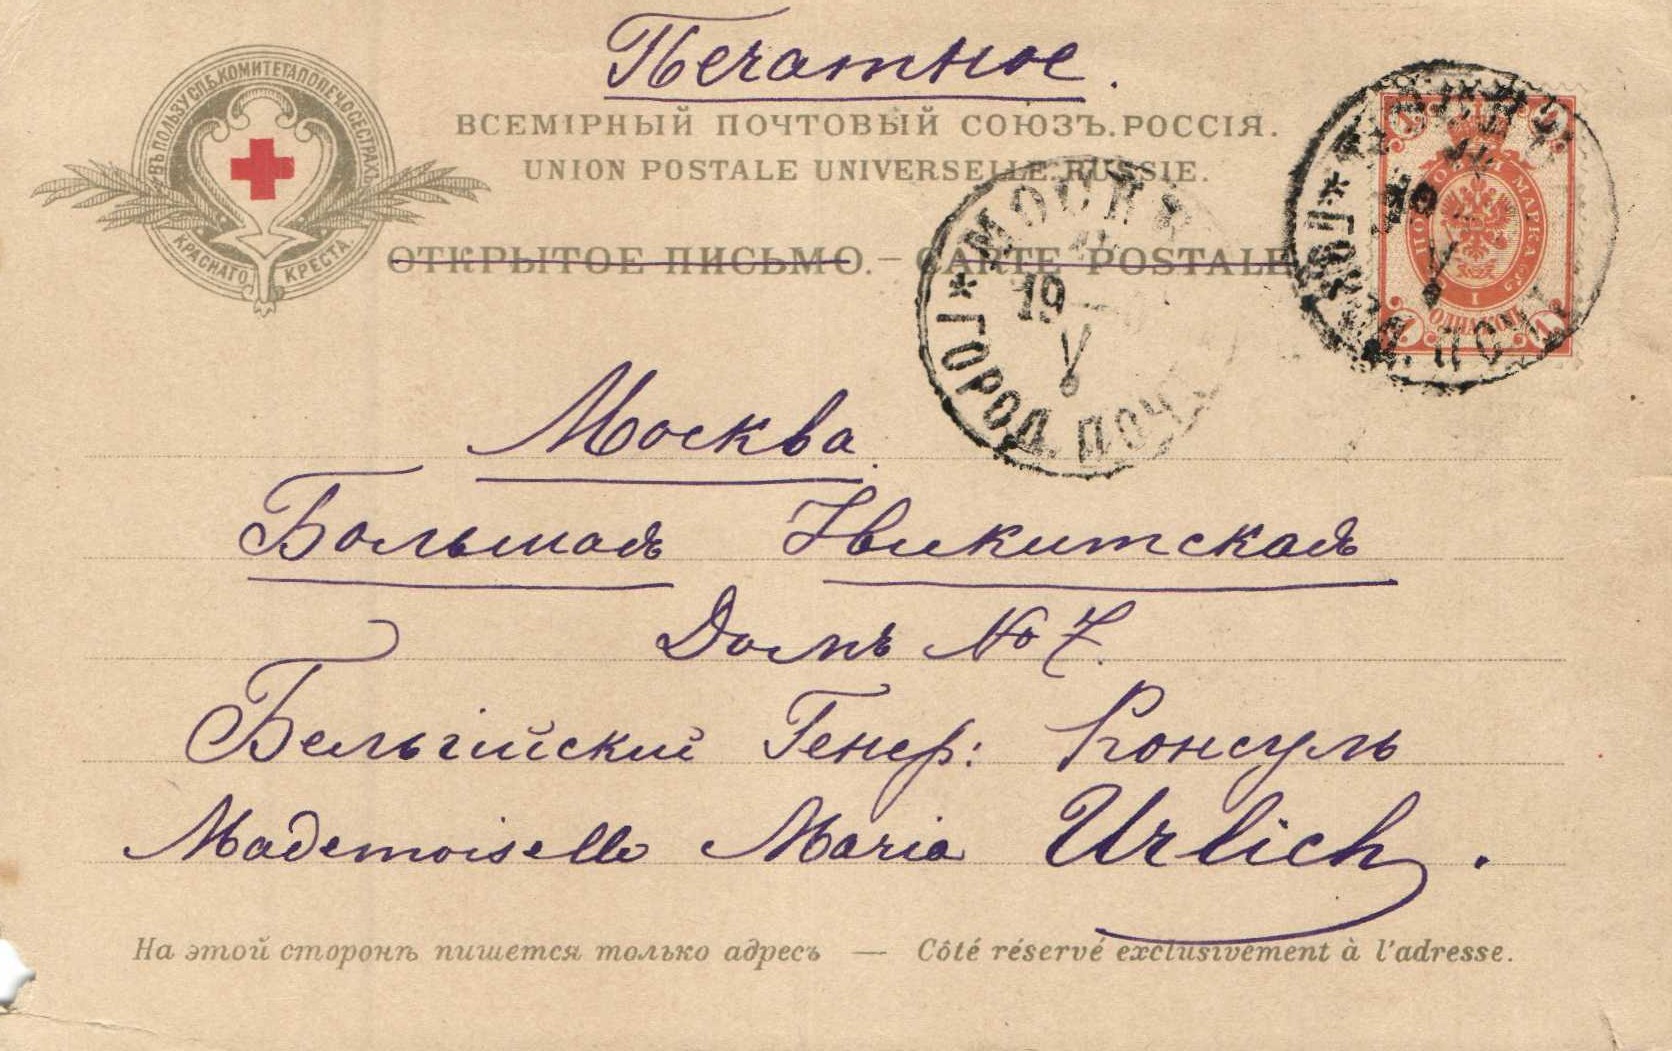 Печатное.
ВСЕМІРНЫЙ ПОЧТОВЫЙ СОЮЗЪ. РОССІЯ.
UNION POSTALE UNIVERSELLE. RUSSIE.
ОТКРЫТОЕ ПИСЬМО. — CARTE POSTALE
ВЪ ПОЛЬЗУ СПБ. КОМИТЕТА ПОПЕЧ. О СЕСТРАХЪ
КРАСНАГО КРЕСТА.
МОСКВА
19
V
ГОРОД. ПОЧТ
ПОЧТОВАЯ МАРКА
1
ОДНА КОП.
Москва.
Большая Никитская
Домъ № 7.
Бельгійский Генер: Консулъ
Mademoiselle Maria Urlich.
На этой сторонѣ пишется только адресъ — Côté réservé exclusivement à l'adresse.